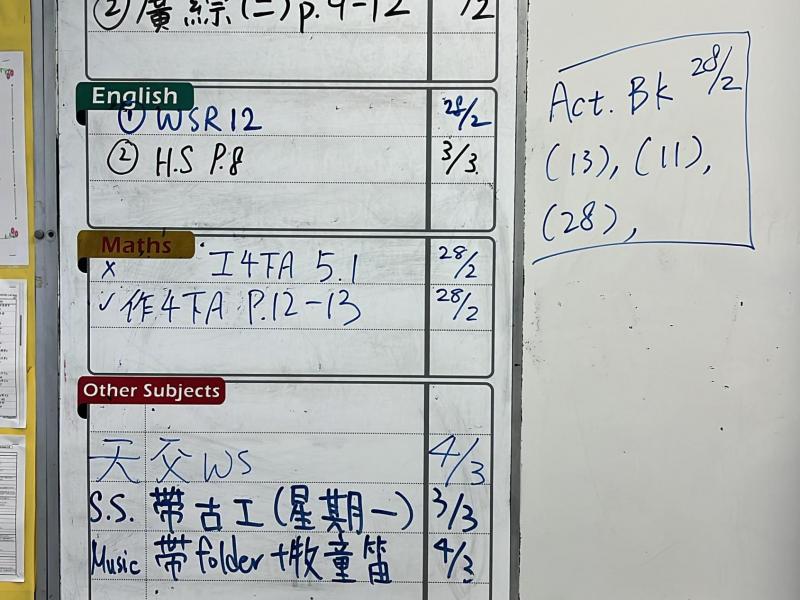 ② 廣綜(二)p.9-12 /2
English
① WSR12 28/2
② H.S P.8 3/3.
Maths
x 工4下A 5.1 28/2
✓ 作4下A P.12-13 28/2
Other Subjects
天交WS 4/3
S.S. 帶古工(星期一) 3/3
Music 帶folder+牧童笛 4/3
Act. Bk 28/2
(13), (11),
(28),